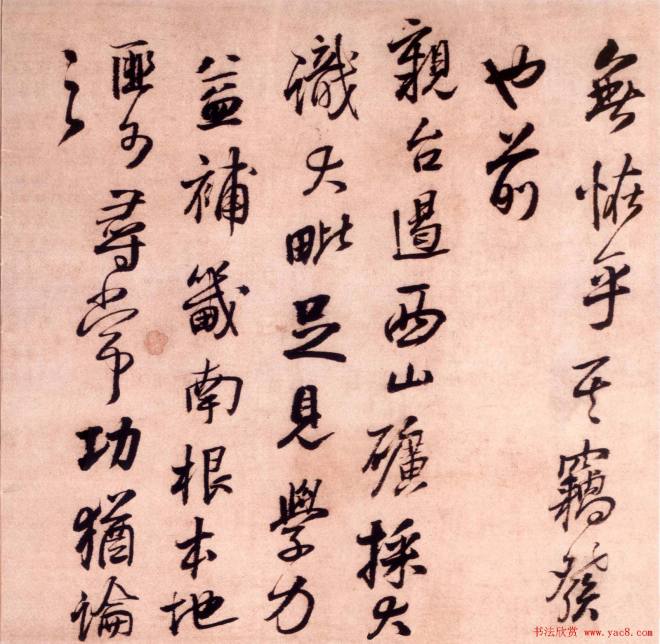 無恠乎其竊發
也前
親台遏西山礦採大
識大毗足見學力
益補畿南根本地
匪可尋常功猶論
之
书法欣赏 www.yac8.com